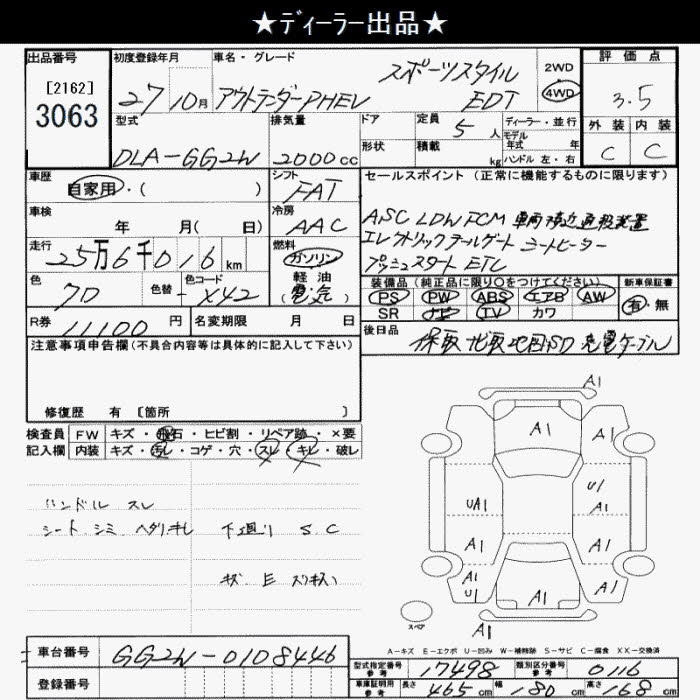 ★ディーラー出品★
出品番号
[2162]
3063
初度登録年月
27 10月
車名・グレード
スポーツスタイル
アウトランダーPHEV EDT
2WD
4WD
評価点
3.5
外装 内装
C C
型式
DLA-GG2W
排気量
2000cc
ドア
形状
定員 5人
積載 kg
ディーラー・並行
モデル年式 年
ハンドル 左・右
車歴
自家用・( )
シフト
FAT
車検
年 月( 日)
冷房
AAC
走行
25万6千016km
燃料
ガソリン
軽油
(電気)
色
クロ
色替
-
色コード
X42
R券 11100円
名変期限 月 日
セールスポイント(正常に機能するものに限ります)
ASC LDW FCM 車両接近通報装置
エレクトリックテールゲート シートヒーター
プッシュスタート ETC
装備品(純正品に限り○をつけてください)
PS PW ABS エアB AW
SR ナビ TV カワ
新車保証書
有・無
後日品
保取 ナビ取 地図SD 充電ケーブル
注意事項申告欄(不具合内容等は具体的に記入して下さい)
修復歴 有 [箇所 ]
検査員記入欄
FW キズ・飛石・ヒビ割・リペア跡・×要
内装 キズ・汚レ・コゲ・穴・スレ・キレ・破レ
ハンドル スレ
シート シミ ヘタリ キレ 下廻り S.C
A1
A1
A1
UA1
U1
A1
A1
A1
A1
U1
A1
A1
A1
スペア
A-キズ E-エクボ U-凹み W-補修跡 S-サビ C-腐食 XX-交換済
車台番号
GG2W-0108446
登録番号
型式指定番号 参考 17498
類別区分番号 参考 0116
車庫証明用 参考 長さ 465cm 幅 180cm 高さ 168cm